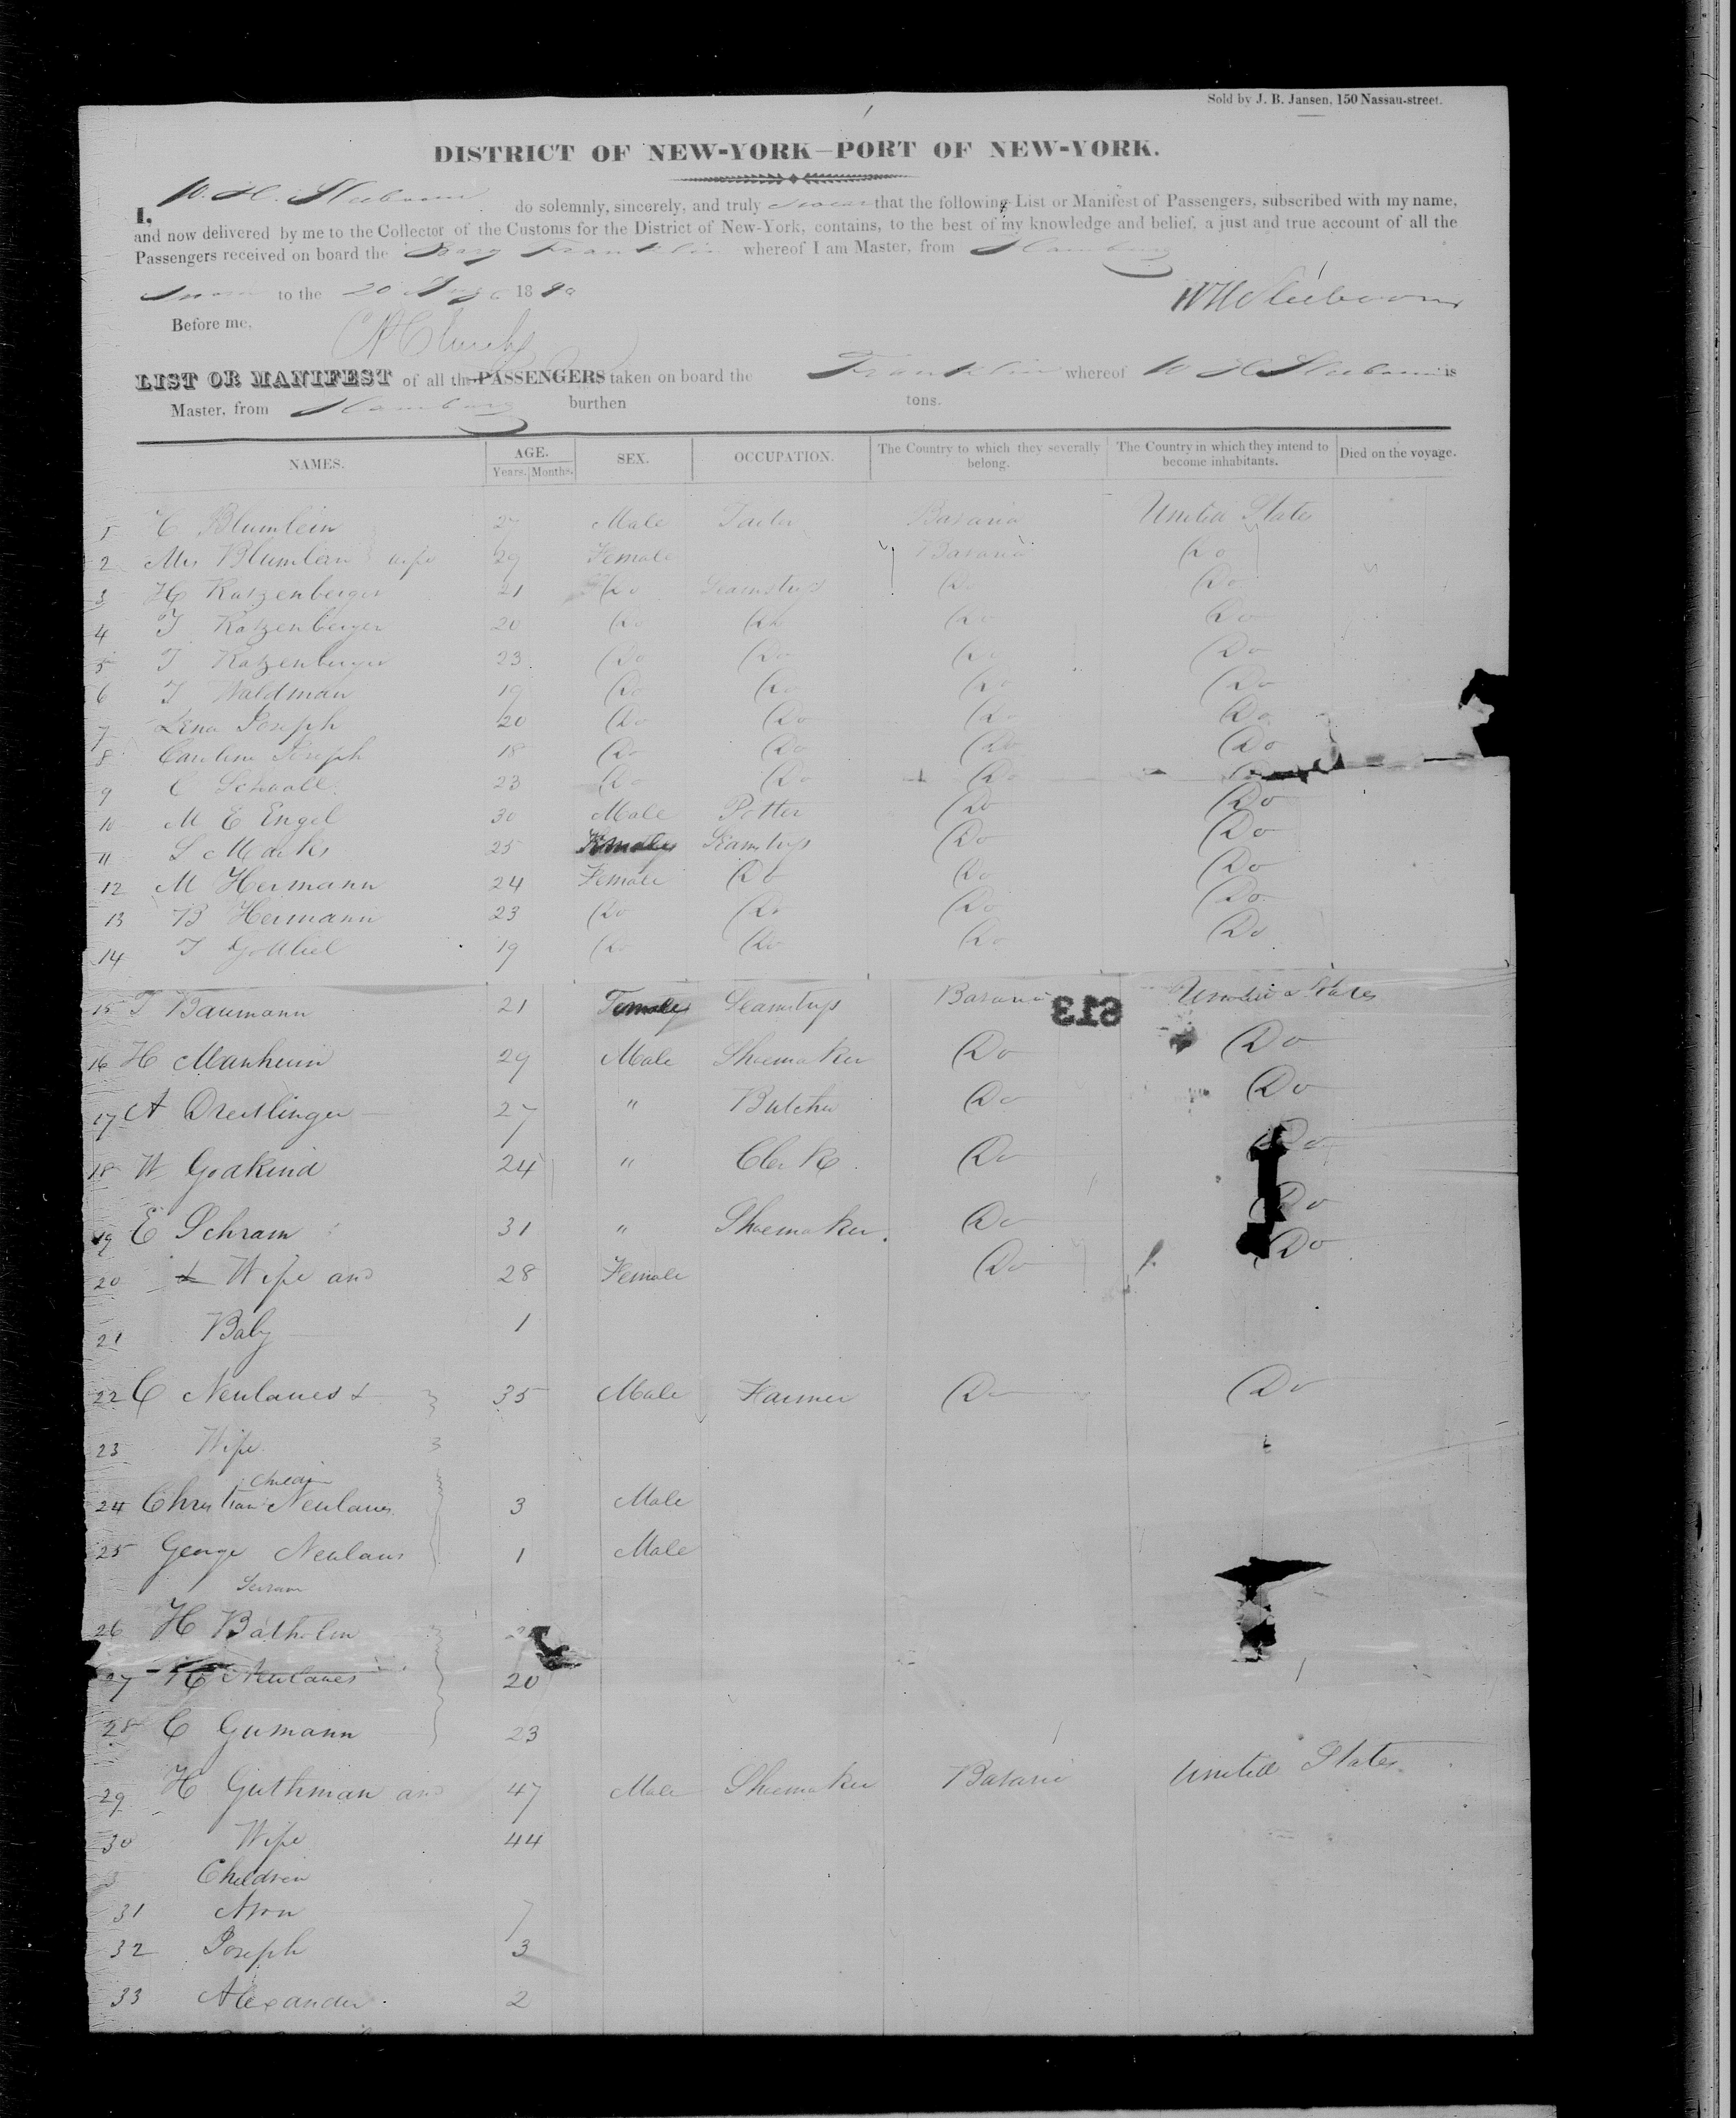 Sold by J. B. Jansen, 150 Nassau-street.
DISTRICT OF NEW-YORK—PORT OF NEW-YORK.
I, W. H. do solemnly, sincerely, and truly swear that the following List or Manifest of Passengers, subscribed with my name,
and now delivered by me to the Collector of the Customs for the District of New-York, contains, to the best of my knowledge and belief, a just and true account of all the
Passengers received on board the Franklin whereof I am Master, from Hamburg
Sworn to the 20 18
Before me,
LIST OR MANIFEST of all the PASSENGERS taken on board the Franklin whereof W H is
Master, from Hamburg burthen tons.
NAMES. AGE. Years. Months. SEX. OCCUPATION. The Country to which they severally belong. The Country in which they intend to become inhabitants. Died on the voyage.
1 C Blumlein 27 Male Bavaria United States
2 Mrs Blumlein wife 29 Female Bavaria Do
3 H Katzenberger 21 Do Seamstrys Do Do
4 T Katzenberger 20 Do Do Do Do
5 T Katzenberger 23 Do Do Do Do
6 T Waldman 19 Do Do Do Do
7 Lina Joseph 20 Do Do Do Do
8 Caroline Joseph 18 Do Do Do Do
9 C 23 Do Do Do Do
10 M E Engel 30 Male Potter Do Do
11 25 Seamstrys Do Do
12 M Hermann 24 Female Do Do Do
13 B Hermann 23 Do Do Do Do
14 T Gottliel 19 Do Do Do Do
15 T Baumann 21 Female Seamstrys Bavaria United States
613
16 H Manheim 29 Male Shoemaker Do Do
17 A Dreitlinger 27 " Butcher Do Do
18 W Godkind 24 " Clerk Do Do
19 E Schram 31 " Shoemaker. Do Do
20 & Wife and 28 Female Do Do
21 Baby 1
22 C Neulaues & 35 Male Farmer Do Do
23 Wife
Children
24 Christian Neulaues 3 Male
25 George Neulaues 1 Male
26 H
27 Neulaues 20
28 C Gumann 23
29 H Guthman and 47 Male Shoemaker Bavaria United States
30 Wife 44
Children
31 Aron 7
32 Joseph 3
33 Alexander 2